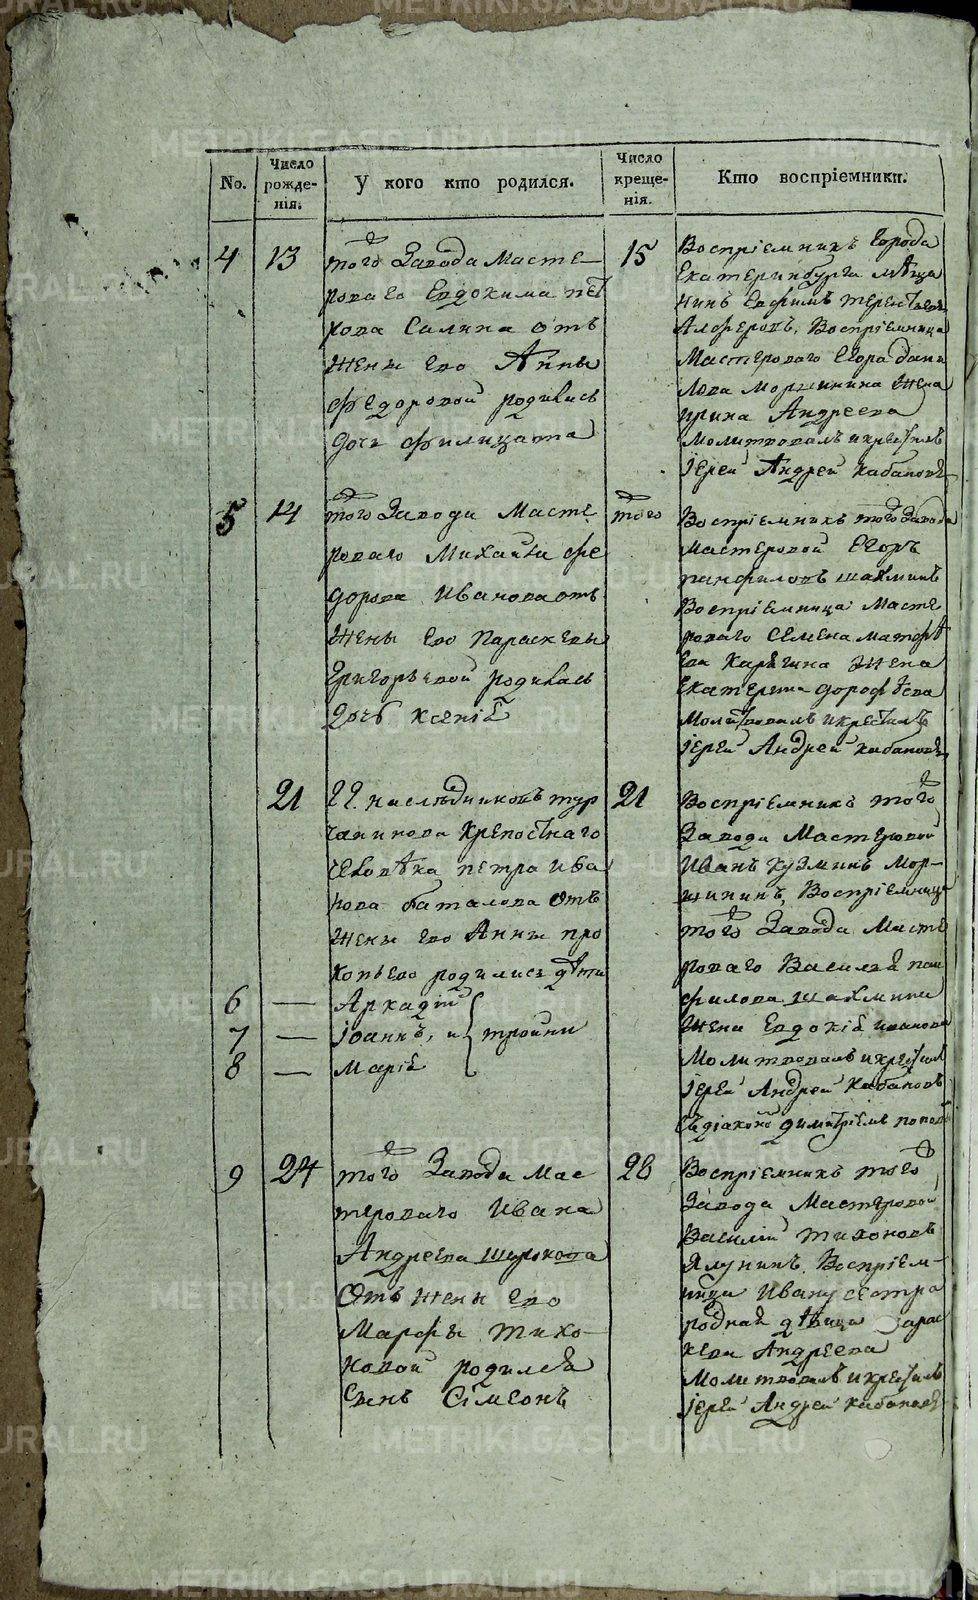 No.
Число рожде-нія.
У кого кто родился.
Число креще-нія.
Кто воспріемники.
4
13
того Завода Масте-
роваго Евдокима пет
рова Салина отъ
жены его Анны
Федоровой родилась
дочь Филицата
15
Воспріемникъ города
Екатеринбурга мѣща
нинъ Евфимъ
Алферовъ, Воспріемница
Мастероваго Егора дани
лова Моршинина жена
ирина Андреева
Молитвовалъ и крестилъ
іерей Андрей Кабановъ
5
14
того Завода Масте
роваго Михайла Фе
дорова Иванова отъ
жены его Параскевы
Григорьевой родилась
дочь Ксенія
того
Воспріемникъ того Завода
Мастеровой Егоръ
панфиловъ шахминъ
Воспріемница Масте
роваго Семена матфѣ
ева Карягина жена
Екатерина дорофѣева
Молитвовалъ и крестилъ
іерей Андрей Кабановъ
21
ГГ. наслѣдниковъ тур
чанинова Крепостнаго
человѣка петра ива
нова баталова отъ
жены его Анны про
копьево родились дѣти
6 — Аркадій
7 — Іоаннъ, и тройни
8 — Марія
21
Воспріемникъ того
Завода Мастеровой
Иванъ Кузминъ Мор-
шининъ, Воспріемница
того Завода Масте
роваго Василья пан
филова шахмина
жена Евдокія иванова
Молитвовалъ и крестилъ
іерей Андрей Кабановъ
съ діакономъ димитріемъ поповы
9
24
того Завода Мас
тероваго Ивана
Андреева
Отъ жены его
Марфы Тихо-
новой родился
Сынъ Сімеонъ
28
Воспріемникъ того
Завода Мастеровой
Василій тихоновъ
Ялунинъ. Воспріем-
ница Ивану сестра
родная дѣвица
кева Андреева
Молитвовалъ и крестилъ
іерей Андрей Кабановъ
METRIKI.GASO-URAL.RU